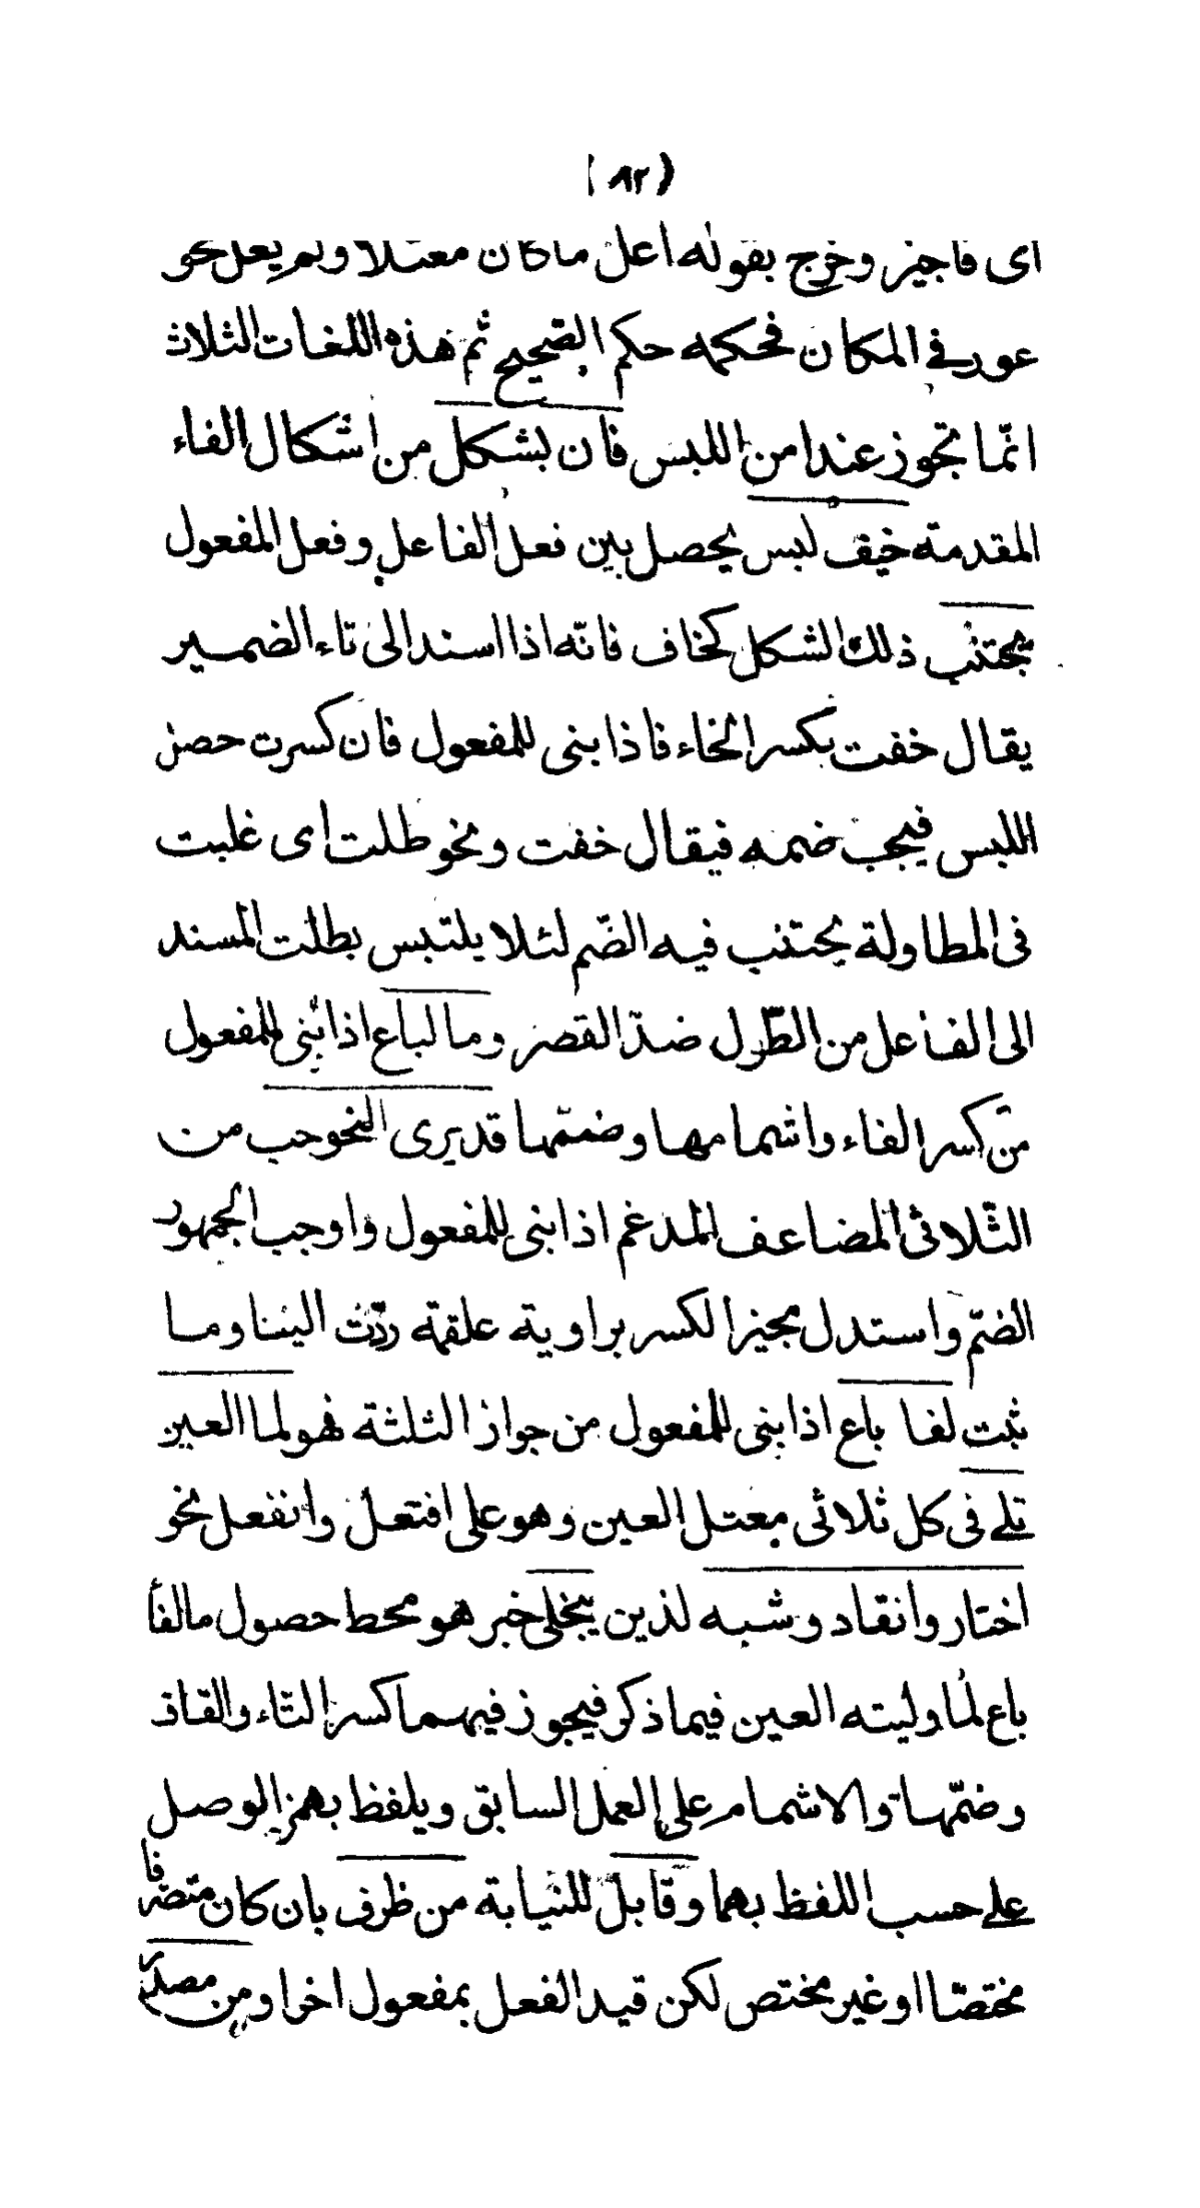 (٨٢)
اى فاجيز وخرج بقوله اعل ماكان معتلا ولم يعل نحو
عور فى المكان فحكمه حكم الصحيح ثم هذه اللغات الثلاث
انّما تجوز عند امن اللبس فان بشكل من اشكال الفاء
المقدمة خيف لبس يحصل بين فعل الفاعل وفعل المفعول
يجتنب ذلك الشكل كخاف فانّه اذا اسند الى تاء الضمير
يقال خفت بكسر الخاء فاذا بنى للمفعول فان كسرت حصل
اللبس فيجب ضمه فيقال خفت ونحو طلت اى غلبت
فى المطاولة يجتنب فيه الضّم لئلا يلتبس بطلت المسند
الى الفاعل من الطّول ضدّ القصر وما لباع اذا بنى للمفعول
من كسر الفاء واشمامها وضمّها قد يرى لنحو حب من
الثّلاثى المضاعف المدغم اذا بنى للمفعول واوجب الجمهور
الضّم واستدل مجيز الكسر براوية علقمة ردّت الينا وما
ثبت لفا باع اذا بنى للمفعول من جواز الثلثة فهو لما العين
تلى فى كل ثلاثى معتل العين وهو على افتعل وانفعل نحو
اختار وانقاد وشبه لذين ينجلى خبر هو محط حصول مالفا
باع لما وليته العين فيما ذكر فيجوز فيهما كسر التّاء والقاف
وضمّها والاشمام على العمل السابق ويلفظ بهمز الوصل
على حسب اللفظ بهما وقابل للنيابة من ظرف بان كان متصرفا
مختصّا او غير مختص لكن قيد الفعل بمفعول اخر او من مصدر